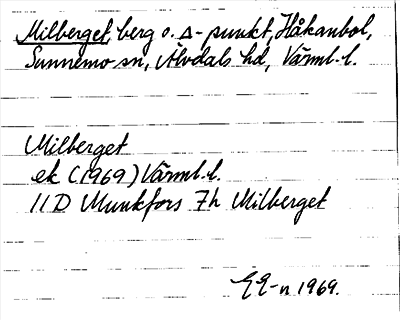 Milberget, berg o. Δ-punkt, Håkanbol,
Sunnemo sn, Älvdals hd, Värml. l.
Milberget
ek (1969) Värml. l.
11D Munkfors 7h Milberget
EE-n 1969.